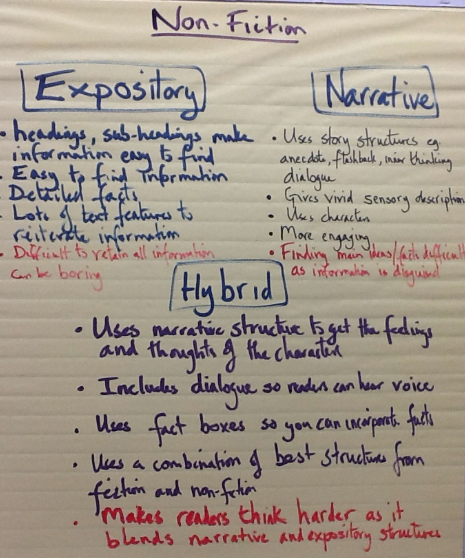 Non-Fiction
Expository
• headings, sub-headings make
information easy to find
• Easy to find Information
• Detailed facts
• Lots of text features to
reiterate information
• Difficult to retain all information
can be boring
Narrative
• Uses story structures eg
anecdote, flashback, inner thinking
dialogue
• Gives vivid sensory description
• Uses characters
• More engaging
• Finding main ideas/facts difficult
as information is disguised
Hybrid
• Uses narrative structure to get the feelings
and thoughts of the characters
• Includes dialogue so readers can hear voice
• Uses fact boxes so you can incorporate facts
• Uses a combination of best structures from
fiction and non-fiction
• Makes readers think harder as it
blends narrative and expository structures